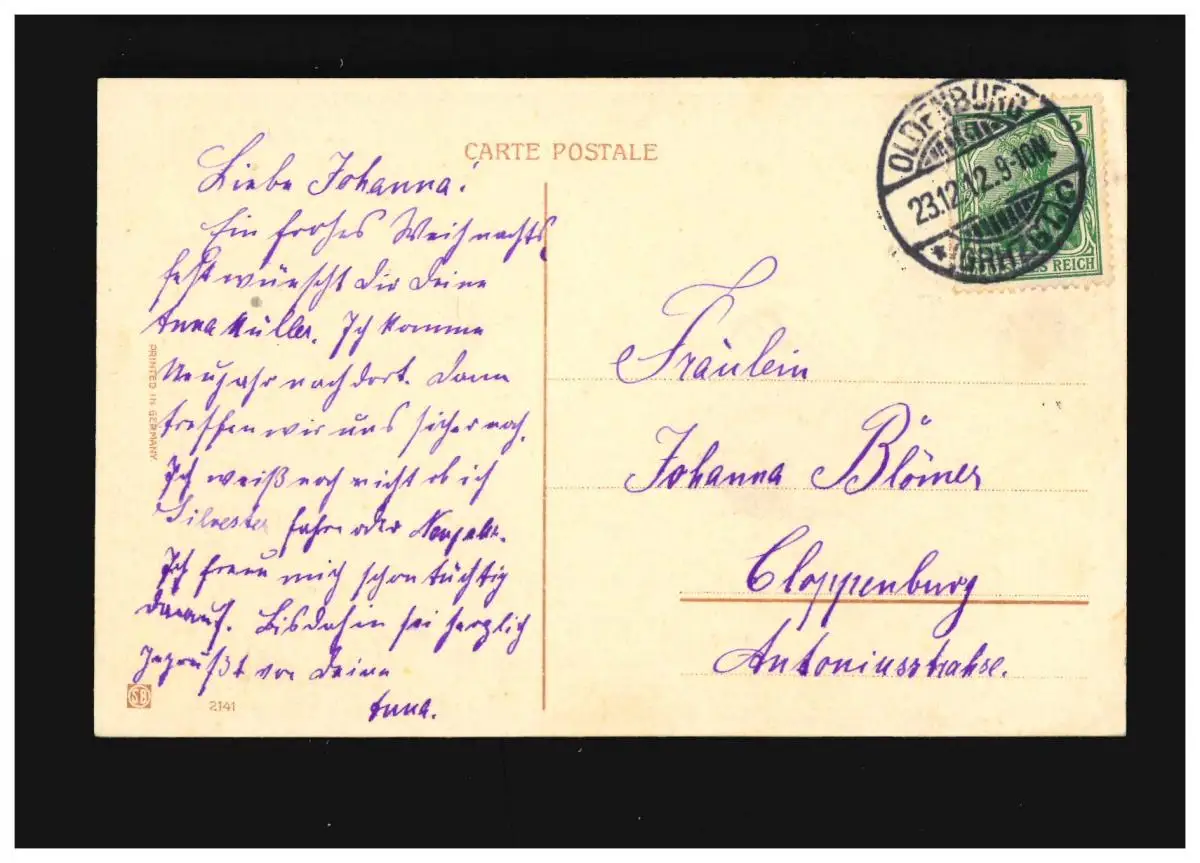 CARTE POSTALE
Liebe Johanna!
Ein frohes Weihnachts
fest wünscht dir deine
Anna Müller. Ich komme
Neujahr nach dort. Dann
treffen wir uns sicher noch.
Ich weiß noch nicht ob ich
Silvester fahre oder Neujahr.
Ich freue mich schon tüchtig
darauf. Bis dahin sei herzlich
gegrüßt von Deine
Anna.
PRINTED IN GERMANY
SB
2141
OLDENBURG
23.12.12.9-10N.
* (GRHZGT.) C
5
REICH
Fräulein
Johanna Blömer
Cloppenburg
Antoniusstrahse.